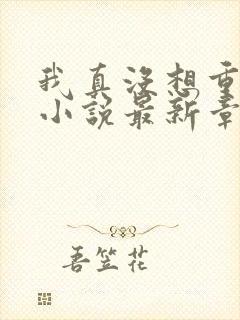 我真没想重
小说最新章
吾笠花